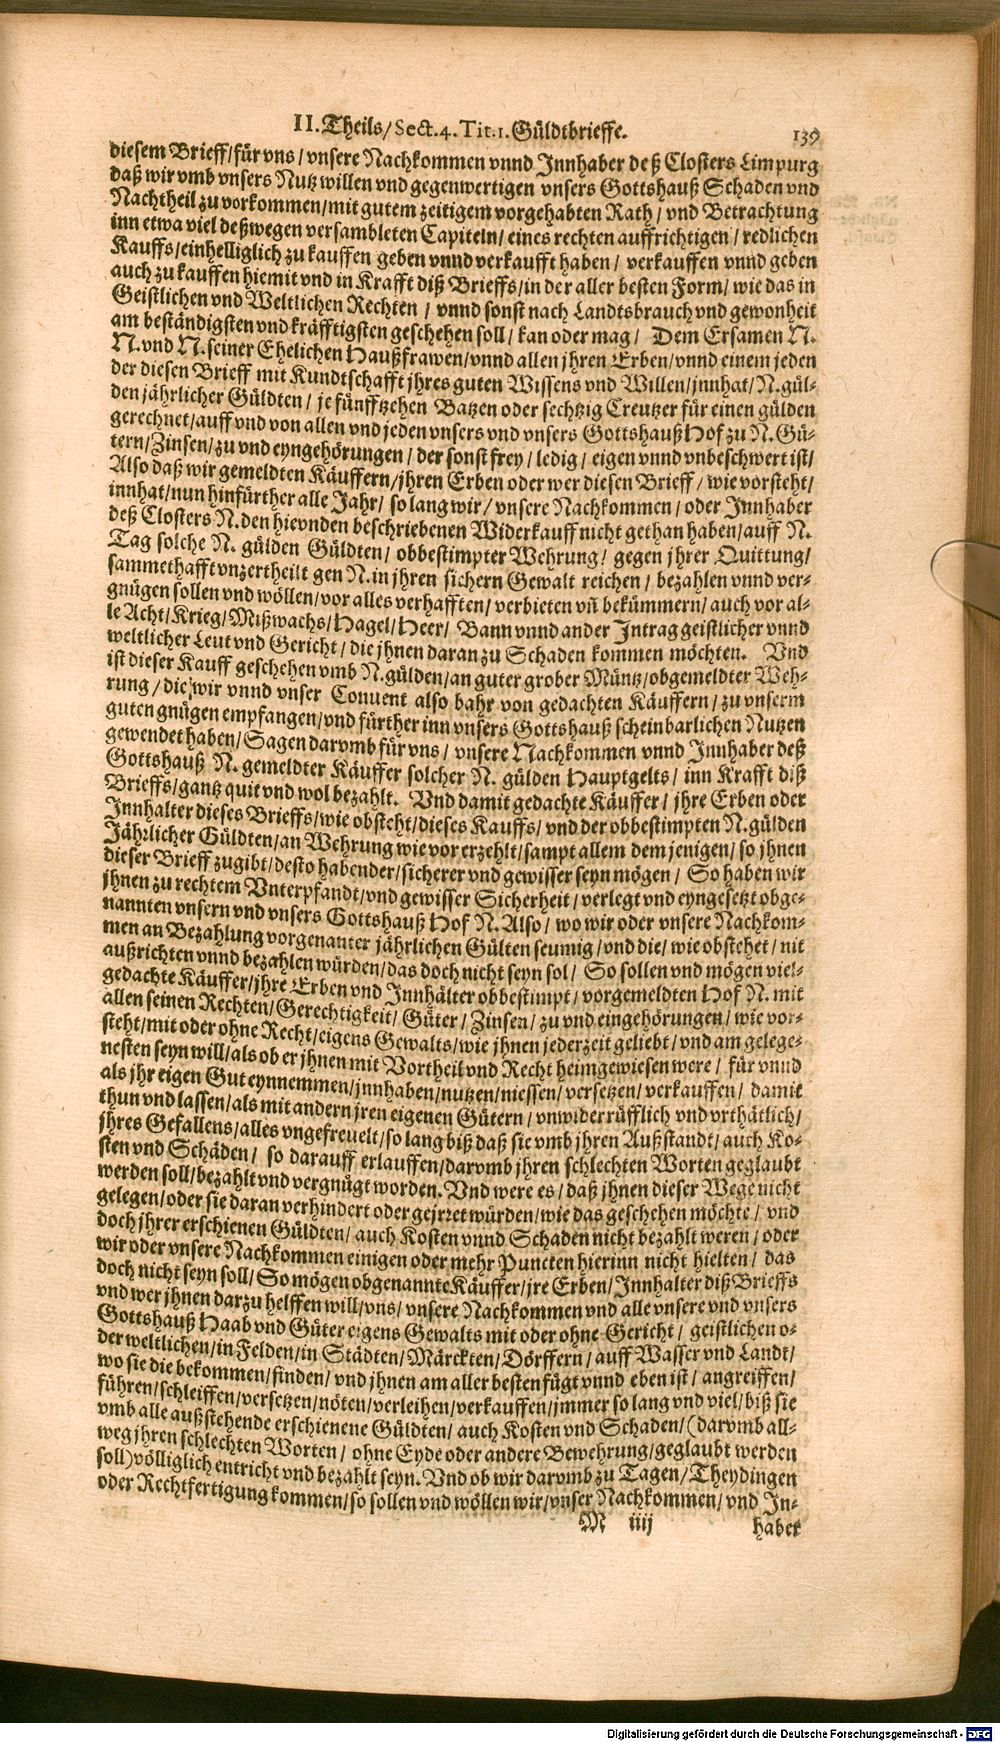 II. Theils/ Sect. 4. Tit. 1. Güldtbrieffe. 139
diesem Brieff/für vns/vnsere Nachkommen vnnd Innhaber deß Closters Limpurg
daß wir vmb vnsers Nutz willen vnd gegenwertigen vnsers Gottshauß Schaden vnd
Nachtheil zu vorkommen/mit gutem zeitigem vorgehabten Rath/ vnd Betrachtung
inn etwa viel deßwegen versambleten Capiteln/ eines rechten auffrichtigen/ redlichen
Kauffs/einhelliglich zu kauffen geben vnnd verkaufft haben/ verkauffen vnnd geben
auch zu kauffen hiemit vnd in Krafft diß Brieffs/in der aller besten Form/ wie das in
Geistlichen vnd Weltlichen Rechten/ vnnd sonst nach Landtsbrauch vnd gewonheit
am beständigsten vnd kräfftigsten geschehen soll/ kan oder mag/ Dem Ersamen N.
N. vnd N. seiner Ehelichen Haußfrawen/vnnd allen jhren Erben/vnnd einem jeden
der diesen Brieff mit Kundtschafft jhres guten Wissens vnd Willen/jnnhat/N. gül-
den jährlicher Güldten/ je fünfftzehen Batzen oder sechtzig Creutzer für einen gülden
gerechnet/auff vnd von allen vnd jeden vnsers vnd vnsers Gottshauß Hof zu N. Gü-
tern/Zinsen/zu vnd eyngehörungen/ der sonst frey/ ledig/ eigen vnnd vnbeschwert ist/
Also daß wir gemeldten Käuffern/jhren Erben oder wer diesen Brieff/ wie vorsteht/
innhat/nun hinfürther alle Jahr/ so lang wir/ vnsere Nachkommen/ oder Innhaber
deß Closters N. den hievnden beschriebenen Widerkauff nicht gethan haben/auff N.
Tag solche N. gülden Güldten/ obbestimpter Wehrung/ gegen jhrer Quittung/
sammethafft vnzertheilt gen N. in jhren sichern Gewalt reichen/ bezahlen vnnd ver-
gnügen sollen vnd wöllen/vor alles verhafften/ verbieten vñ bekümmern/ auch vor al-
le Acht/Krieg/Mißwachs/Hagel/Heer/ Bann vnnd ander Intrag geistlicher vnnd
weltlicher Leut vnd Gericht/ die jhnen daran zu Schaden kommen möchten. Vnd
ist dieser Kauff geschehen vmb N. gülden/an guter grober Müntz/obgemeldter Weh-
rung/ die wir vnnd vnser Convent also bahr von gedachten Käuffern/ zu vnserm
guten gnügen empfangen/vnd fürther inn vnsers Gottshauß scheinbarlichen Nutzen
gewendet haben/ Sagen darvmb für vns/ vnsere Nachkommen vnnd Innhaber deß
Gottshauß N. gemeldter Käuffer solcher N. gülden Hauptgelts/ inn Krafft diß
Brieffs/gantz quit vnd wol bezahlt. Vnd damit gedachte Käuffer/ jhre Erben oder
Innhalter dieses Brieffs/wie obsteht/dieses Kauffs/ vnd der obbestimpten N. gülden
Jährlicher Güldten/an Wehrung wie vor erzehlt/sampt allem dem jenigen/ so jhnen
dieser Brieff zugibt/desto habender/sicherer vnd gewisser seyn mögen/ So haben wir
jhnen zu rechtem Vnterpfandt/vnd gewisser Sicherheit/ verlegt vnd eyngesetzt obge-
nannten vnsern vnd vnsers Gottshauß Hof N. Also/ wo wir oder vnsere Nachkom-
men an Bezahlung vorgenanter jährlichen Gülten seumig/vnd die/ wie obstehet/ nit
außrichten vnnd bezahlen würden/das doch nicht seyn sol/ So sollen vnd mögen viel-
gedachte Käuffer/jhre Erben vnd Innhälter obbestimpt/ vorgemeldten Hof N. mit
allen seinen Rechten/Gerechtigkeit/ Güter/ Zinsen/ zu vnd eingehörungen/ wie vor-
steht/mit oder ohne Recht/eigens Gewalts/wie jhnen jederzeit geliebt/ vnd am gelege-
nesten seyn will/als ob er jhnen mit Vortheil vnd Recht heimgewiesen were/ für vnnd
als jhr eigen Gut eynnemmen/jnnhaben/nutzen/niessen/versetzen/ verkauffen/ damit
thun vnd lassen/als mit andern jren eigenen Gütern/ vnwiderrüfflich vnd vrthätlich/
jhres Gefallens/alles vngefreuelt/so lang biß daß sie vmb jhren Außstandt/ auch Ko-
sten vnd Schäden/ so darauff erlauffen/darvmb jhren schlechten Worten geglaubt
werden soll/bezahlt vnd vergnügt worden. Vnd were es/ daß jhnen dieser Wege nicht
gelegen/oder sie daran verhindert oder gejrret würden/wie das geschehen möchte/ vnd
doch jhrer erschienen Güldten/ auch Kosten vnnd Schaden nicht bezahlt weren/ oder
wir oder vnsere Nachkommen einigen oder mehr Puncten hierinn nicht hielten/ das
doch nicht seyn soll/ So mögen obgenannte Käuffer/jre Erben/Innhalter diß Brieffs
vnd wer jhnen darzu helffen will/vns/ vnsere Nachkommen vnd alle vnsere vnd vnsers
Gottshauß Haab vnd Güter eigens Gewalts mit oder ohne Gericht/ geistlichen o-
der weltlichen/in Felden/in Städten/Märckten/Dörffern/ auff Wasser vnd Landt/
wo sie die bekommen/finden/ vnd jhnen am aller besten fügt vnnd eben ist/ angreiffen/
führen/schleiffen/versetzen/nöten/verleihen/verkauffen/jmmer so lang vnd viel/biß sie
vmb alle außstehende erschienene Güldten/ auch Kosten vnd Schaden/(darvmb all-
weg jhren schlechten Worten/ ohne Eyde oder andere Bewehrung/geglaubt werden
soll) völliglich entricht vnd bezahlt seyn. Vnd ob wir darvmb zu Tagen/ Theydingen
oder Rechtfertigung kommen/so sollen vnd wöllen wir/vnser Nachkommen/ vnd In-
M iiij haber
Digitalisierung gefördert durch die Deutsche Forschungsgemeinschaft - DFG